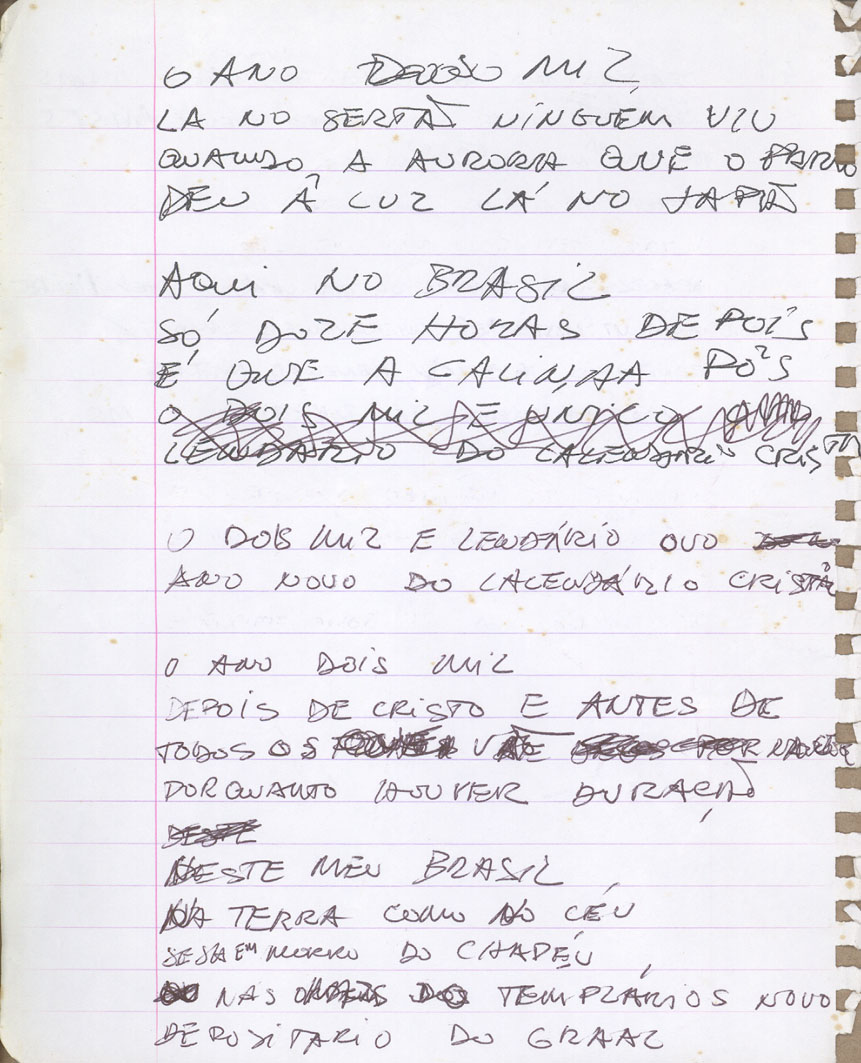 O ANO MIL
LA NO SERTÃ NINGUÉM VIU
QUANDO A AURORA QUE O
DEU À LUZ LÁ NO JAPÃ
AQUI NO BRASIL
SÓ DOZE HORAS DEPOIS
É QUE A GALINHA PÔS
O DOIS MIL E ÚNICO
LENDÁRIO DO CALENDÁRIO CRISTÃ
O DOIS MIL E LENDÁRIO OVO
ANO NOVO DO CALENDÁRIO CRISTÃ
O ANO DOIS MIL
DEPOIS DE CRISTO E ANTES DE
TODOS OS
PORQUANTO HOUVER DURAÇÃ
DESTE
NESTE MEU BRASIL
NA TERRA COMO NO CÉU
SEJA EM MORRO DO CHAPÉU
NAS TEMPLÁRIOS NOVO
DEPOSITARIO DO GRAAL